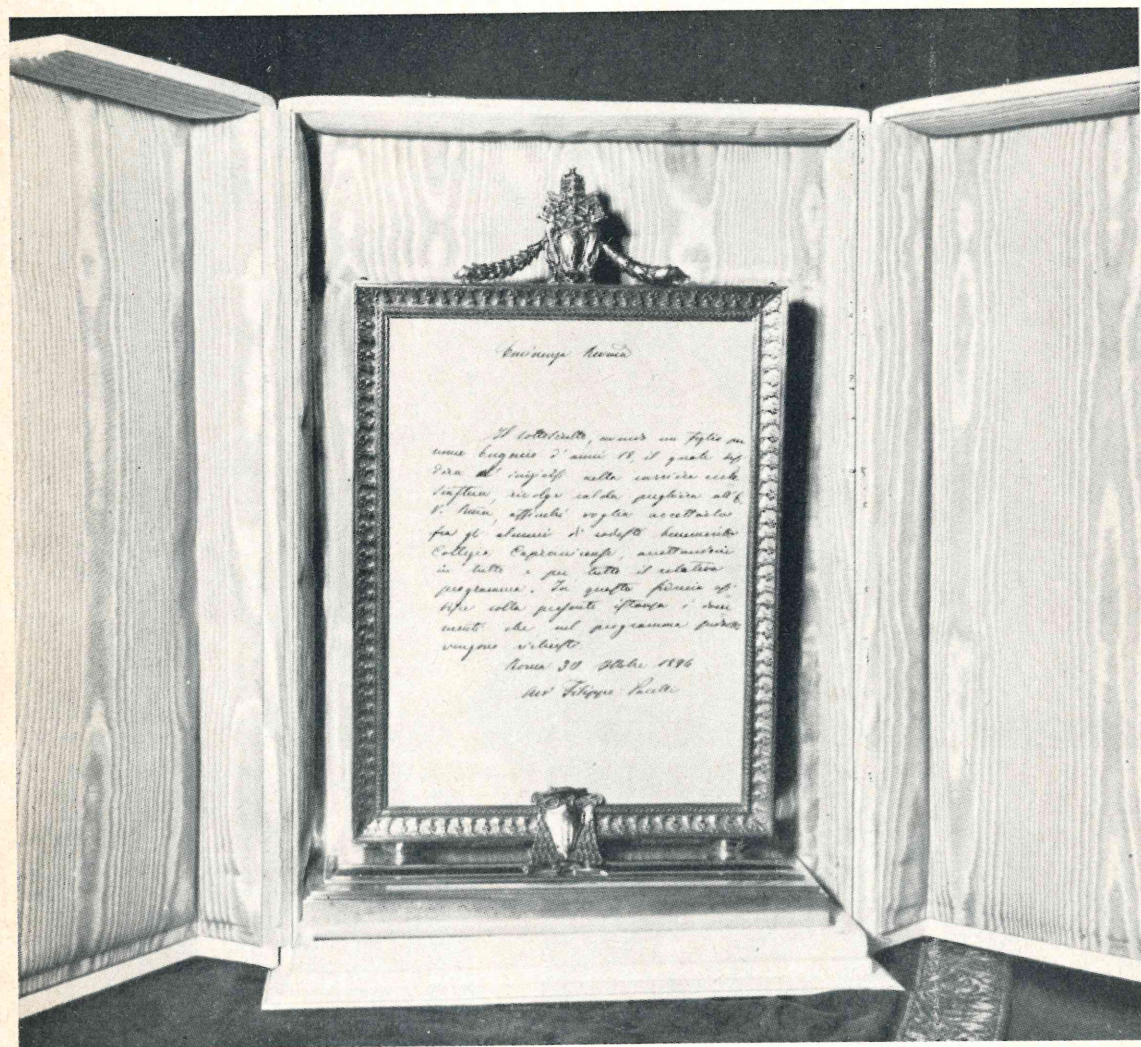 Eminenza Rev̅ma
Il sottoscritto, avendo un figlio per
nome Eugenio d'anni 18, il quale
nella carriera eccle
siastica, rivolge calda preghiera all'E.
V. Rev̅ma, affinchè voglia accettarlo
fra gli alunni di codesto benemerito
Collegio Capranicense, accettandone
in tutto e per tutto il relativo
programma. In questa fiducia
colla presente istanza i docu
menti che nel programma
vengono richiesti
Roma 30 Ottobre 1894
Avv Filippo Pacelli